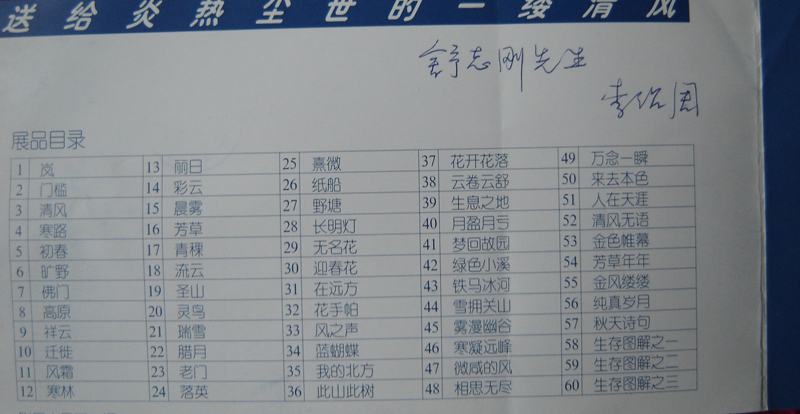 送给炎热尘世的一缕清风
舒志刚先生
李绍周
展品目录
1 岚 13 丽日 25 熹微 37 花开花落 49 万念一瞬
2 门槛 14 彩云 26 纸船 38 云卷云舒 50 来去本色
3 清风 15 晨雾 27 野塘 39 生息之地 51 人在天涯
4 寒路 16 芳草 28 长明灯 40 月盈月亏 52 清风无语
5 初春 17 青稞 29 无名花 41 梦回故园 53 金色帷幕
6 旷野 18 流云 30 迎春花 42 绿色小溪 54 芳草年年
7 佛门 19 圣山 31 在远方 43 铁马冰河 55 金风缕缕
8 高原 20 灵鸟 32 花手帕 44 雪拥关山 56 纯真岁月
9 祥云 21 瑞雪 33 风之声 45 雾漫幽谷 57 秋天诗句
10 迁徙 22 腊月 34 蓝蝴蝶 46 寒凝远峰 58 生存图解之一
11 风霜 23 老门 35 我的北方 47 微咸的风 59 生存图解之二
12 寒林 24 落英 36 此山此树 48 相思无尽 60 生存图解之三